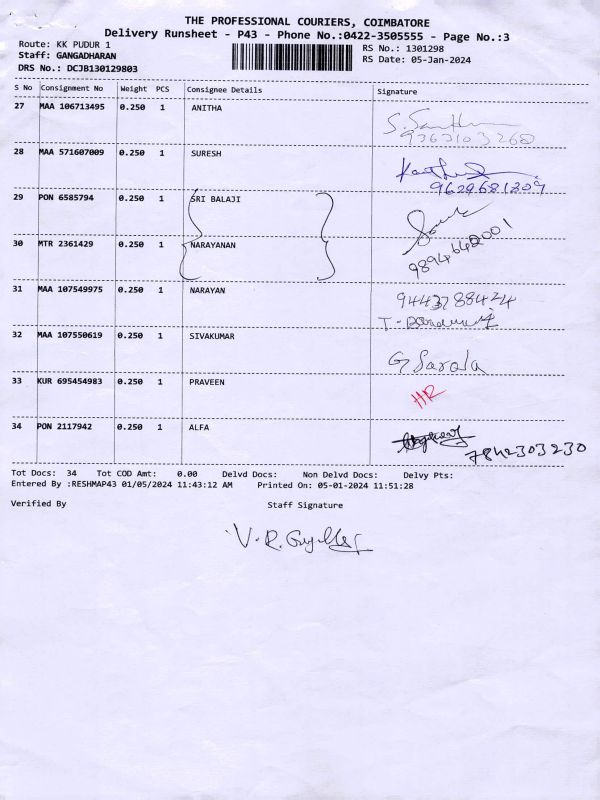 THE PROFESSIONAL COURIERS, COIMBATORE
Delivery Runsheet - P43 - Phone No.:0422-3505555 - Page No.:3
Route: KK PUDUR 1
RS No.: 1301298
Staff: GANGADHARAN
RS Date: 05-Jan-2024
DRS No.: DCJB130129803
S No Consignment No Weight PCS Consignee Details Signature
27 MAA 106713495 0.250 1 ANITHA
28 MAA 571607009 0.250 1 SURESH
9629681209
29 PON 6585794 0.250 1 SRI BALAJI
30 MTR 2361429 0.250 1 NARAYANAN
9894642001
31 MAA 107549975 0.250 1 NARAYAN
9443788424
32 MAA 107550619 0.250 1 SIVAKUMAR
G Sarala
33 KUR 695454983 0.250 1 PRAVEEN HR
34 PON 2117942 0.250 1 ALFA
7842303230
Tot Docs: 34 Tot COD Amt: 0.00 Delvd Docs: Non Delvd Docs: Delvy Pts:
Entered By :RESHMAP43 01/05/2024 11:43:12 AM Printed On: 05-01-2024 11:51:28
Verified By Staff Signature